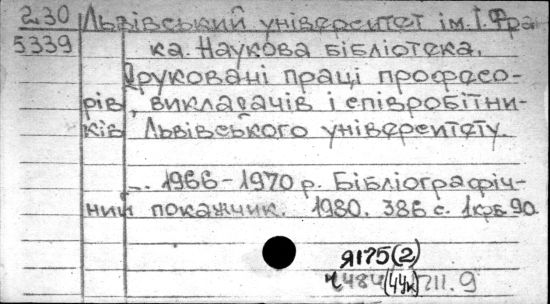 230 Львівський університет ім. І. Фра
5339 ка. Наукова бібліотека.
Друковані праці професо-
рів, викладачів і співробітни-
ків Львівського університету.
–. 1966–1970 р. Бібліографіч-
ний покажчик. 1980. 386 с. 1крб 90.
Я175(2)
Ч484(44к)711.9